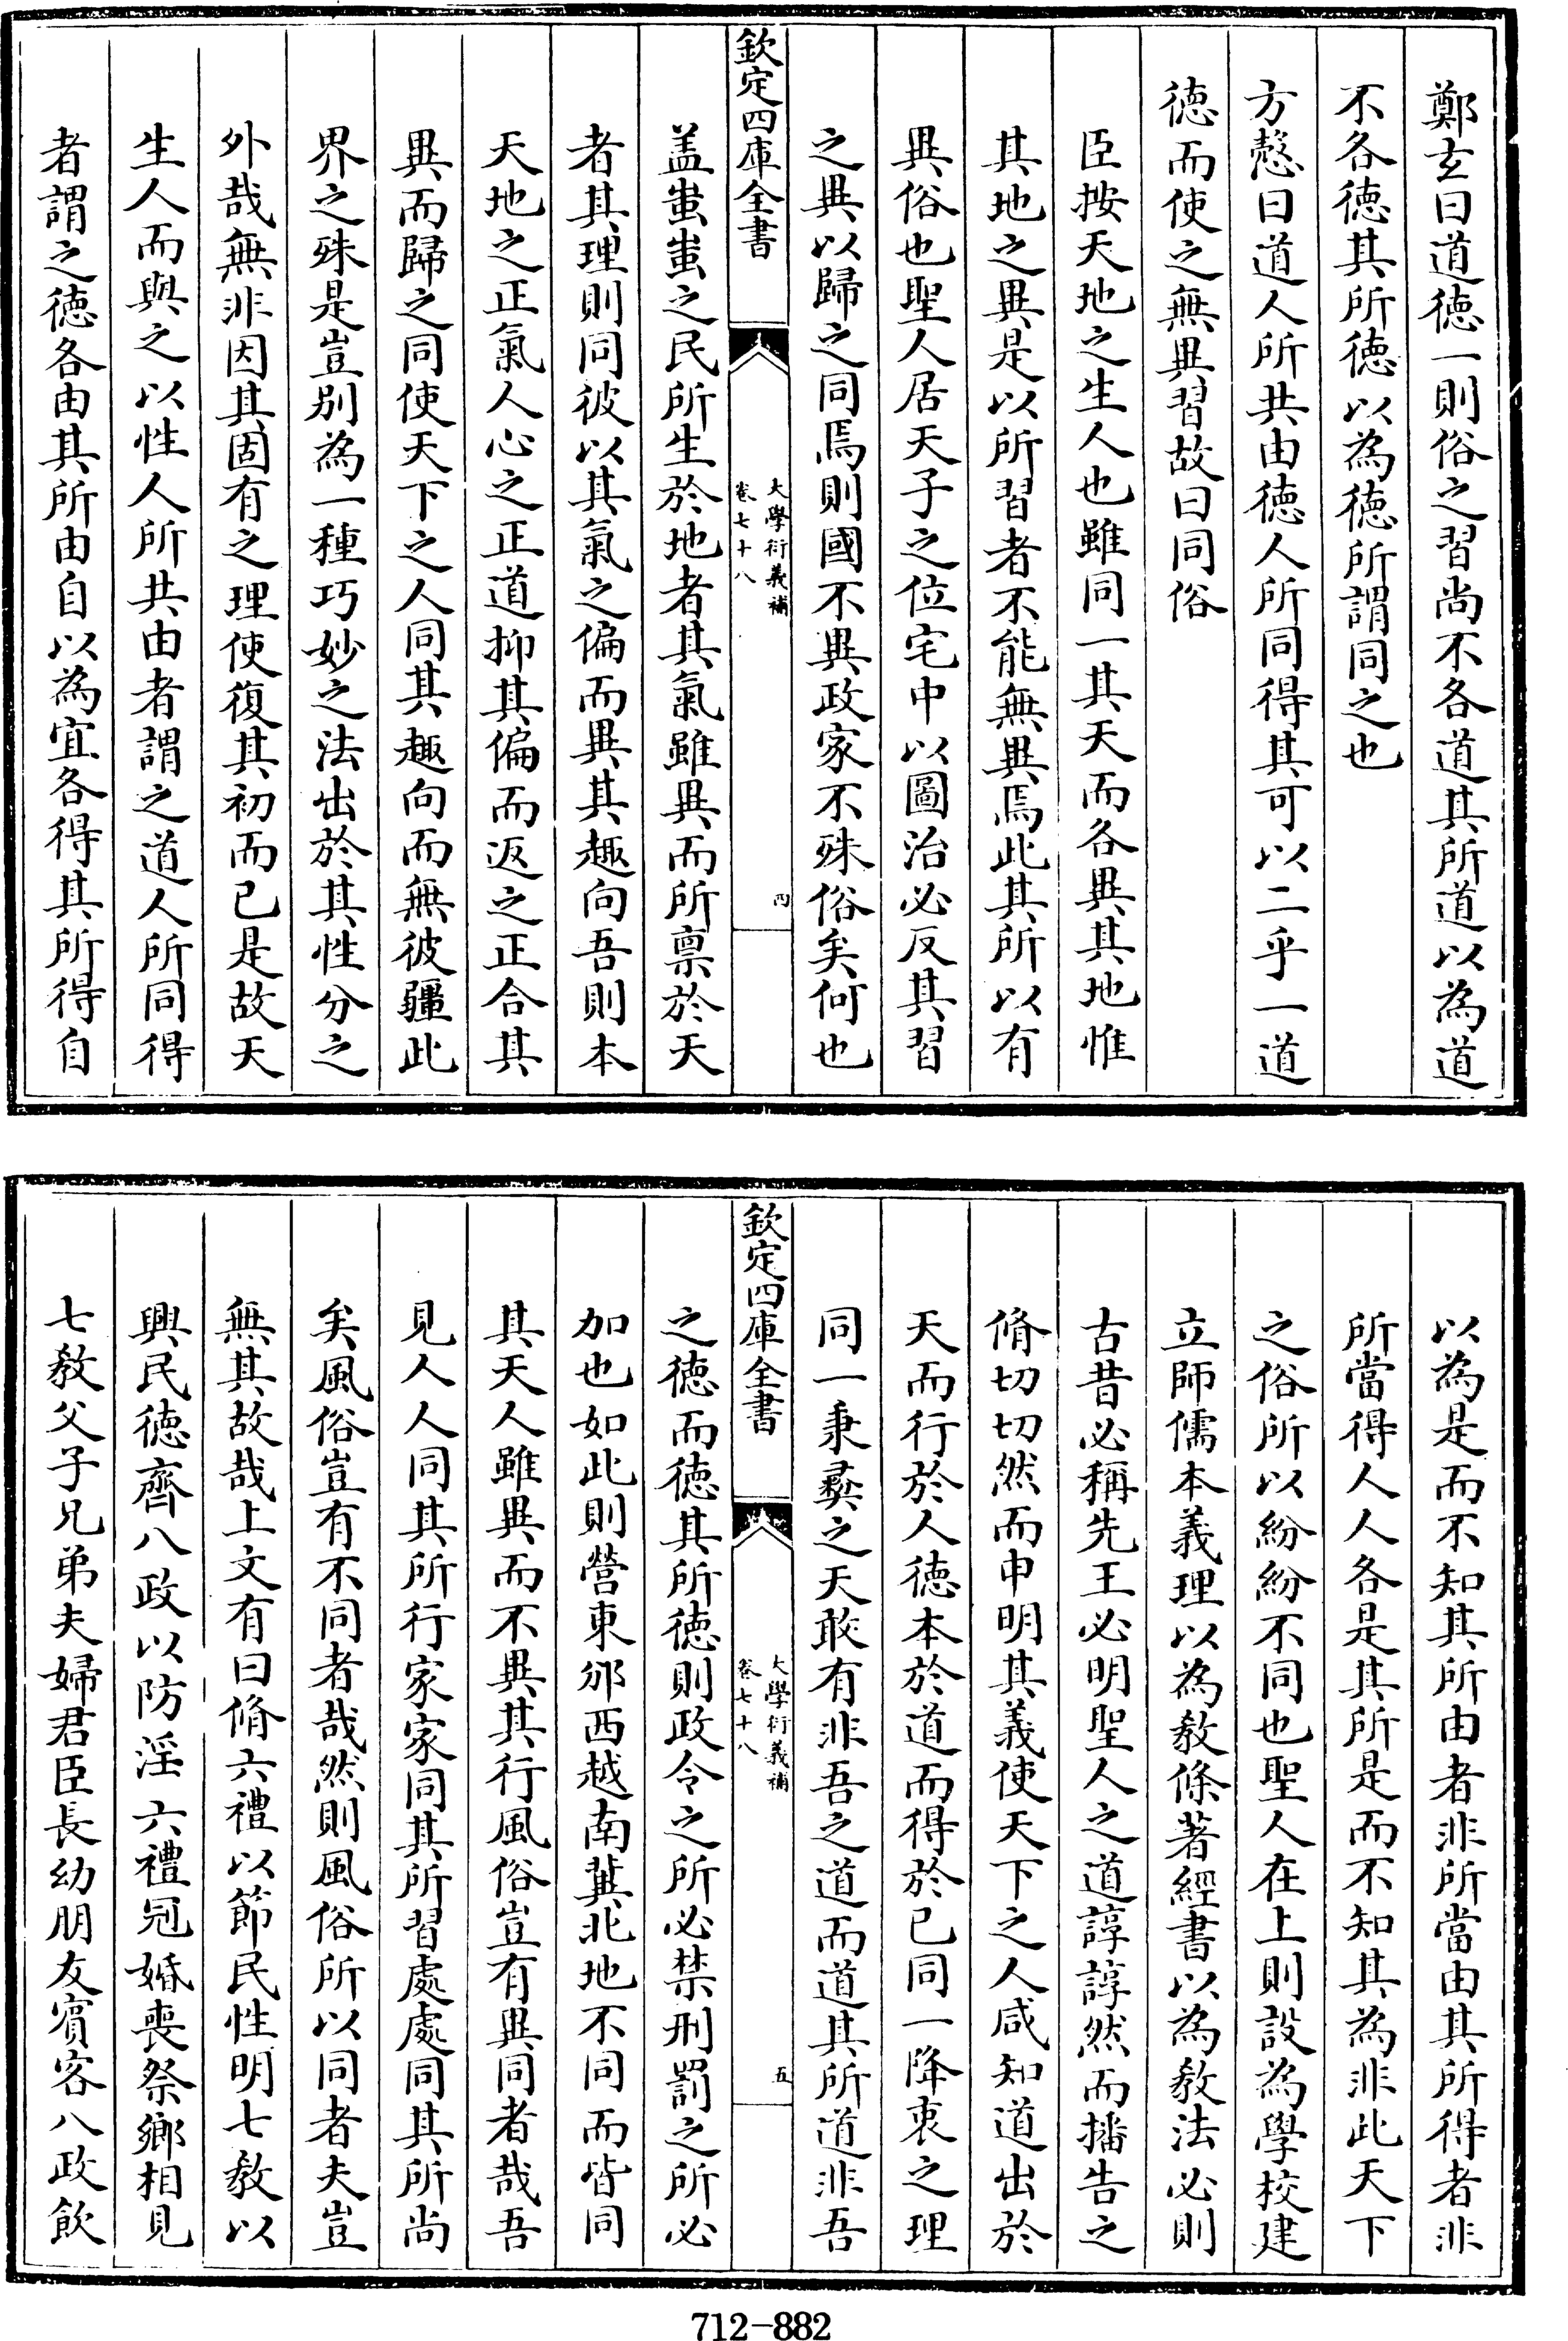 鄭玄曰道徳一則俗之習尚不各道其所道以為道
不各徳其所徳以為徳所謂同之也
方慤曰道人所共由徳人所同得其可以二乎一道
徳而使之無異習故曰同俗
臣按天地之生人也雖同一其天而各異其地惟
其地之異是以所習者不能無異焉此其所以有
異俗也聖人居天子之位宅中以圖治必反其習
之異以歸之同焉則國不異政家不殊俗矣何也
欽定四庫全書
大學衍義補
卷七十八
四
盖蚩蚩之民所生於地者其氣雖異而所禀於天
者其理則同彼以其氣之偏而異其趣向吾則本
天地之正氣人心之正道抑其偏而返之正合其
異而歸之同使天下之人同其趣向而無彼疆此
界之殊是豈别為一種巧妙之法出於其性分之
外哉無非因其固有之理使復其初而已是故天
生人而與之以性人所共由者謂之道人所同得
者謂之徳各由其所由自以為宜各得其所得自
以為是而不知其所由者非所當由其所得者非
所當得人人各是其所是而不知其為非此天下
之俗所以紛紛不同也聖人在上則設為學校建
立師儒本義理以為教條著經書以為教法必則
古昔必稱先王必明聖人之道諄諄然而播告之
脩切切然而申明其義使天下之人咸知道出於
天而行於人徳本於道而得於已同一降衷之理
同一秉彛之天敢有非吾之道而道其所道非吾
欽定四庫全書
大學衍義補
卷七十八
五
之徳而徳其所徳則政令之所必禁刑罰之所必
加也如此則營東邠西越南冀北地不同而皆同
其天人雖異而不異其行風俗豈有異同者哉吾
見人人同其所行家家同其所習處處同其所尚
矣風俗豈有不同者哉然則風俗所以同者夫豈
無其故哉上文有曰脩六禮以節民性明七教以
興民徳齊八政以防淫六禮冠婚喪祭鄉相見
七教父子兄弟夫婦君臣長幼朋友賓客八政飲
712-882